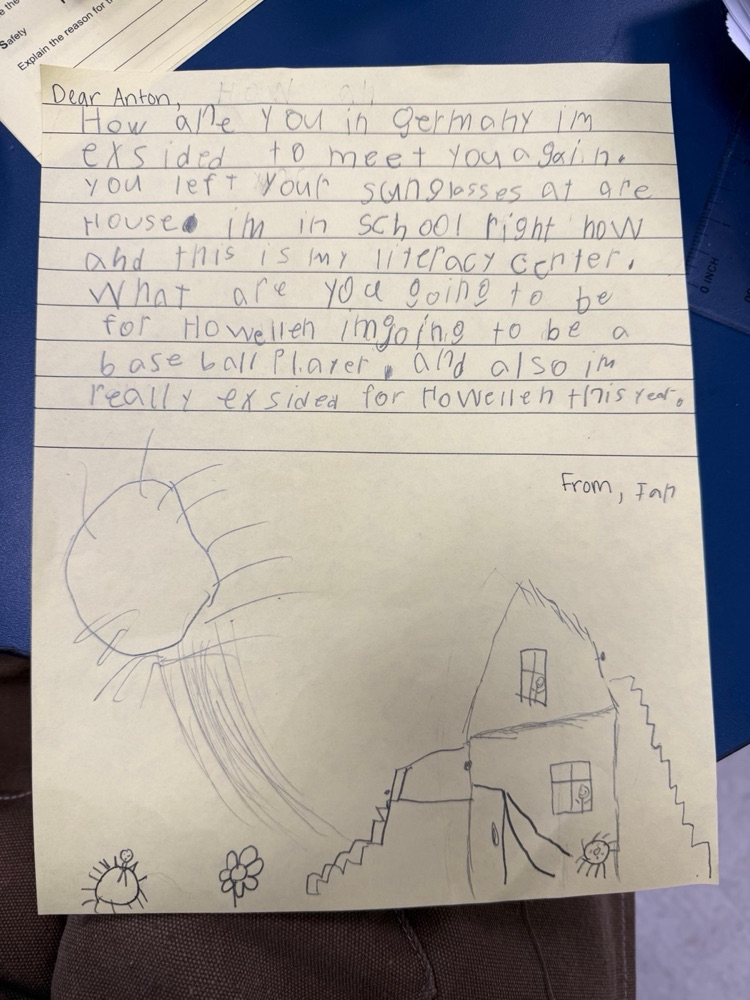 Safety
Explain the reason for
0 INCH
Dear Anton,
How are you in germany im
exsided to meet you again.
you left your sunglasses at are
House. im in school right now
and this is my literacy center.
What are you going to be
for Howellen imgoing to be a
base ball Player. and also im
really exsided for Howellen this year.
From, Ian